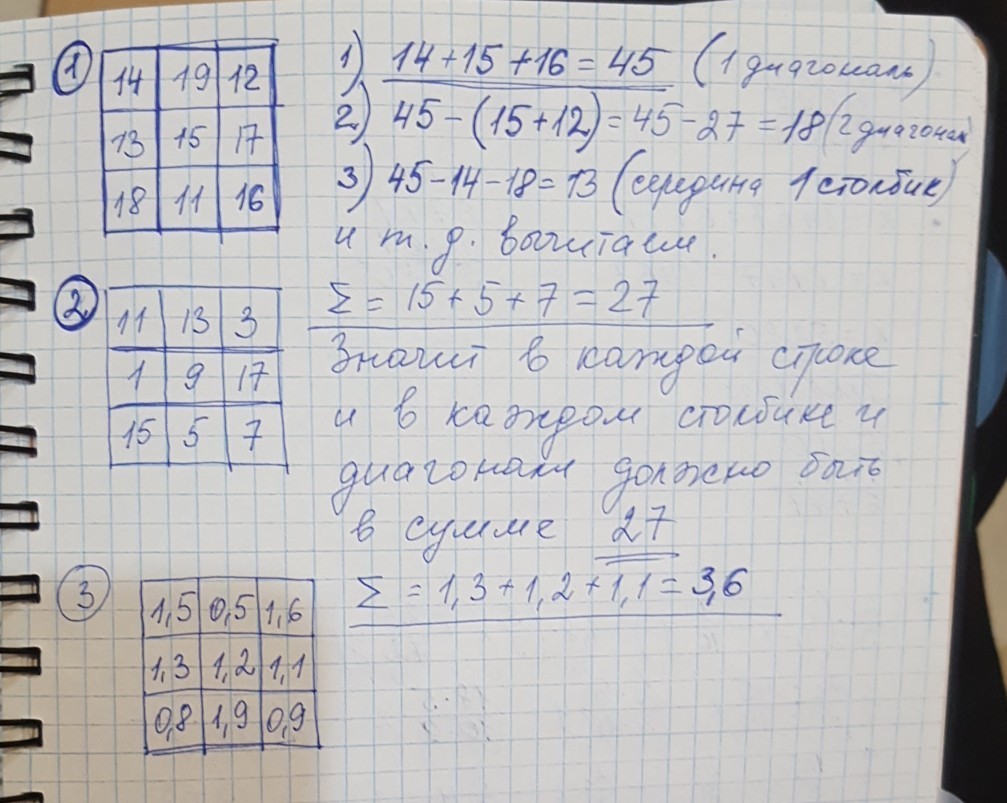 1
14 19 12
13 15 17
18 11 16
1) 14+15+16=45 (1 диагональ)
2) 45-(15+12)=45-27=18 (2 диагонал
3) 45-14-18=13 (середина 1 столбик)
и т. д. вычитаем.
2
11 13 3
1 9 17
15 5 7
Σ = 15+5+7=27
Значит в каждой строке
и в каждом столбике и
диагонали должно быть
в сумме 27
3
1,5 0,5 1,6
1,3 1,2 1,1
0,8 1,9 0,9
Σ = 1,3+1,2+1,1=3,6